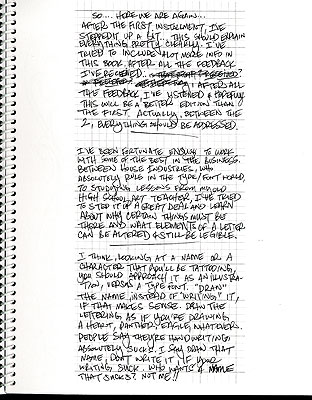 SO... HERE WE ARE AGAIN...
AFTER THE FIRST INSTRUMENT, I'VE
STEPPED IT UP A BIT... THIS SHOULD EXPLAIN
EVERYTHING PRETTY CLEARLY. I'VE
TRIED TO INCLUDE ALOT MORE INFO IN
THIS BOOK AFTER ALL THE FEEDBACK
I'VE RECEIVED.
AFTER ALL
THE FEEDBACK, I'VE LISTENED & HOPEFULLY
THIS WILL BE A BETTER EDITION THAN
THE FIRST. ACTUALLY, BETWEEN THE
2, EVERYTHING SHOULD BE ADDRESSED.
I'VE BEEN FORTUNATE ENOUGH TO WORK
WITH SOME OF THE BEST IN THE BUSINESS.
BETWEEN HOUSE INDUSTRIES, WHO
ABSOLUTELY RULE IN THE TYPE/FONT WORLD,
TO STUDYING LESSONS FROM MY OLD
HIGH SCHOOL ART TEACHER, I'VE TRIED
TO STEP IT UP A GREAT DEAL AND LEARN
ABOUT WHY CERTAIN THINGS MUST BE
THERE AND WHAT ELEMENTS OF A LETTER
CAN BE ALTERED & STILL BE LEGIBLE.
I THINK, LOOKING AT A NAME OR A
CHARACTER THAT YOU'LL BE TATTOOING,
YOU SHOULD APPROACH IT AS AN ILLUSTRA-
TION, VERSUS A TYPE FONT. "DRAW"
THE NAME, INSTEAD OF "WRITING" IT,
IF THAT MAKES SENSE. DRAW THE
LETTERING AS IF YOU'RE DRAWING
A HEART, PANTHER, EAGLE, WHATEVER.
PEOPLE SAY THEIR HANDWRITING
ABSOLUTELY SUCKS. I SAY DRAW THAT
NAME, DON'T WRITE IT, IF YOUR
WRITING SUCKS. WHO WANTS A NAME
THAT SUCKS? NOT ME!!